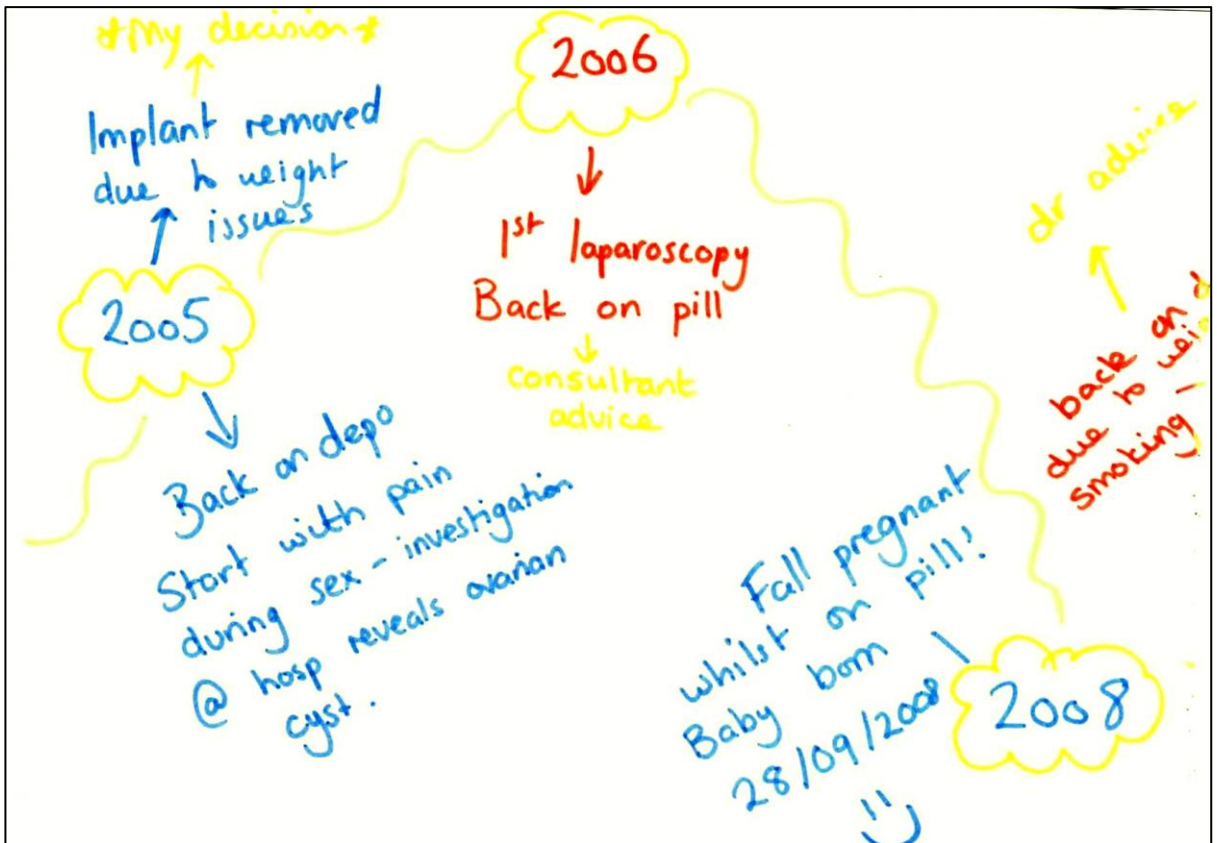 *My decision*
Implant removed
due to weight
issues
2005
Back on depo
Start with pain
during sex - investigation
@ hosp reveals ovarian
cyst.
2006
1st laparoscopy
Back on pill
Consultant
advice
Fall pregnant
whilst on pill!
Baby born
28/09/2008
2008
dr advice
back on
due to
smoking -